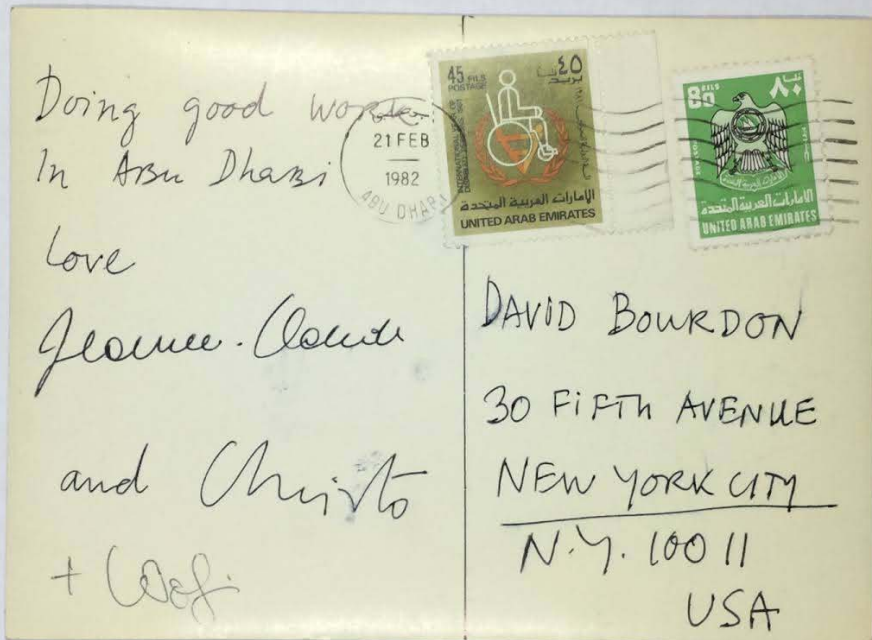 Doing good work
In Abu Dhabi
Love
Jeanne-Claude
and Christo
+ Wolfi
21 FEB
1982
ABU DHABI
45 FILS
POSTAGE
٤٥
الامارات العربية المتحدة
UNITED ARAB EMIRATES
80 FILS
٨٠
الامارات العربية المتحدة
UNITED ARAB EMIRATES
DAVID BOURDON
30 FIFTH AVENUE
NEW YORK CITY
N.Y. 10011
USA